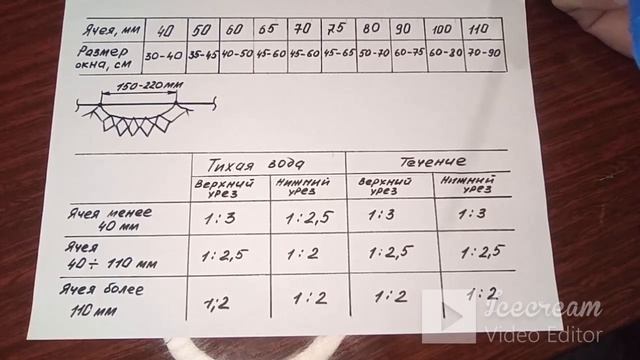 Ячея, мм 40 50 60 65 70 75 80 90 100 110
Размер окна, см 30-40 35-45 40-50 45-60 45-60 45-65 50-70 60-75 60-80 70-90
150-220мм
Тихая вода Течение
Верхний урез Нижний урез Верхний урез Нижний урез
Ячея менее 40 мм 1:3 1:2,5 1:3 1:3
Ячея 40÷110 мм 1:2,5 1:2 1:2,5 1:2,5
Ячея более 110мм 1;2 1:2 1:2 1:2
Icecream
Video Editor